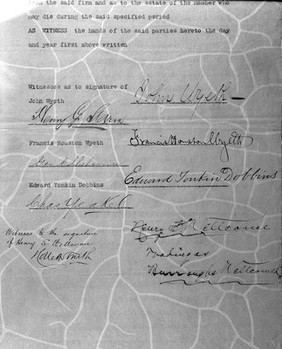 the said firm and as to the estate of the member who
may die during the said specified period
AS WITNESS the hands of the said parties hereto the day
and year first above written
Witnesses as to signature of
John Wyeth
John Wyeth
Henry G.
Francis Houston Wyeth
Francis Houston Wyeth
Edward Tonkin Dobbins
Edward Tonkin Dobbins
Witness to the signature
of Henry S. Wellcome
Smith
Henry S. Wellcome
Trading as
Burroughs Wellcome